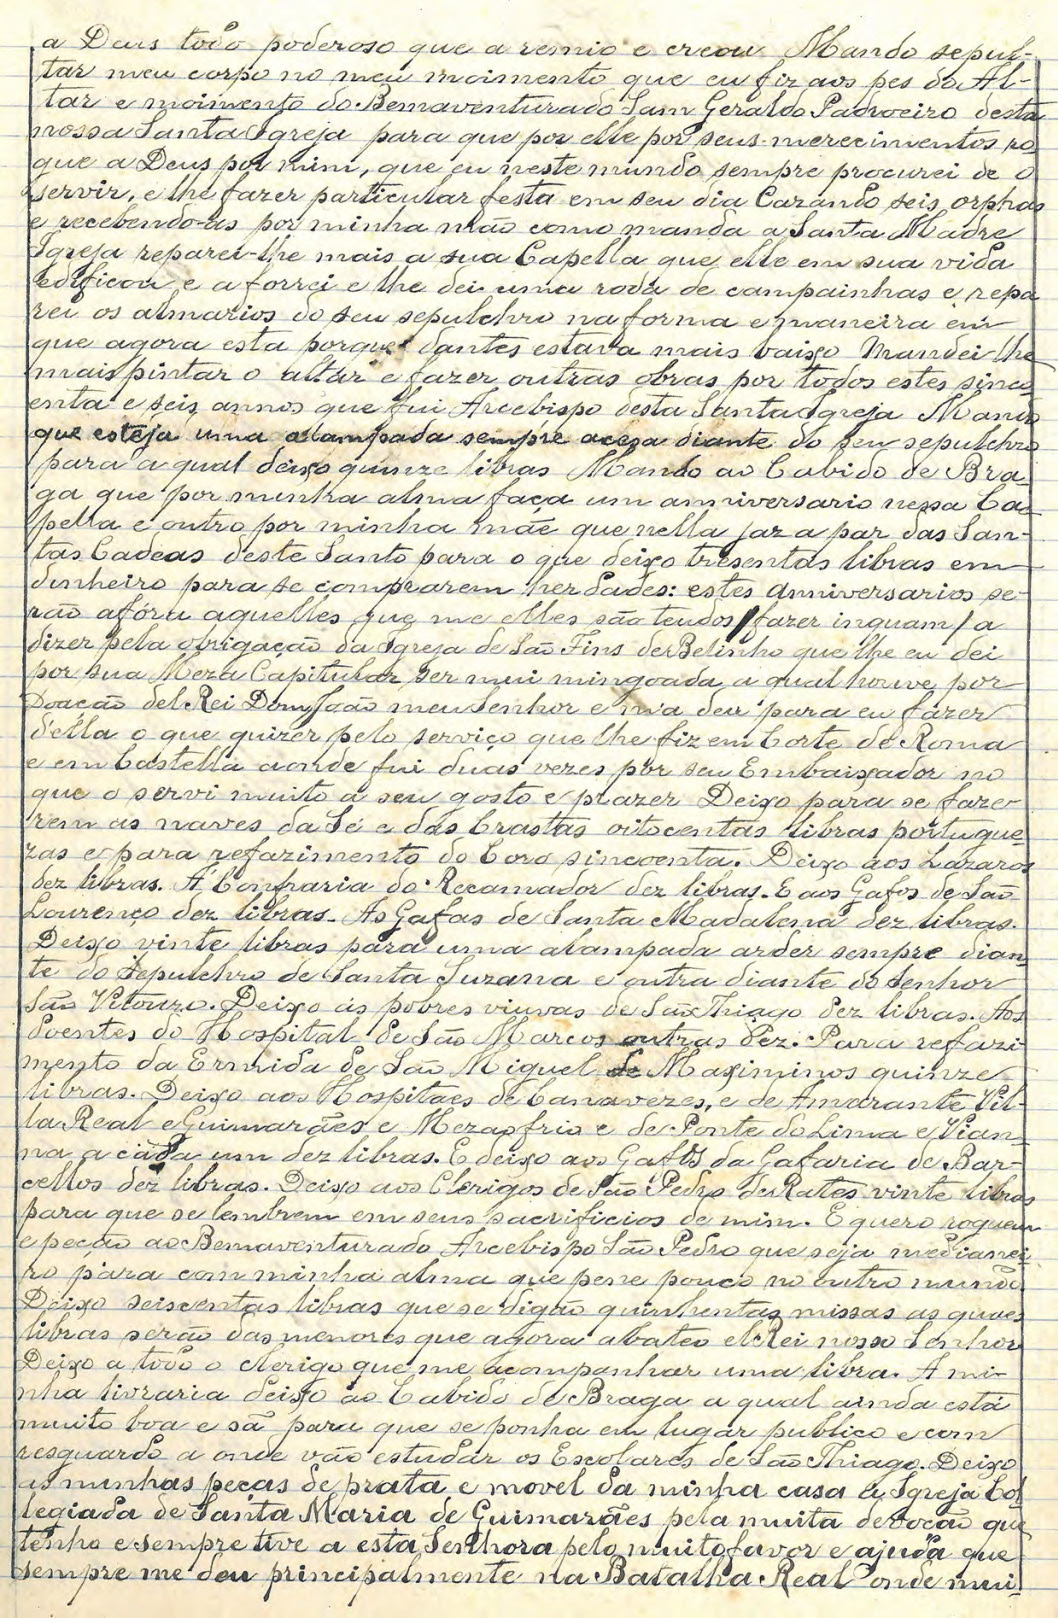 a Deus todo poderoso que a remio e creou. Mando sepul-
tar meu corpo no meu moimento que eu fiz aos pes do Al-
tar e moimento do Bemaventurado Sam Geraldo Padroeiro desta
nossa Santa Igreja para que por elle por seus merecimentos ro
gue a Deus por mim, que eu neste mundo sempre procurei de o
servir, e lhe fazer particular festa em seu dia Cazando seis orphas
e recebendo-as por minha mão como manda a Santa Madre
Igreja reparei-lhe mais a sua Capella que elle em sua vida
edificou e a forrei e lhe dei uma roda de campainhas e repa
rei os almarios do seu sepulchro na forma e maneira em
que agora esta porque dantes estava mais baixo Mandei-lhe
mais pintar o altar e fazer outras obras por todos estes sinco
enta e seis annos que fui Arcebispo desta Santa Igreja Mando
que esteja uma alampada sempre aceza diante do seu sepulchro
para a qual deixo quinze libras Mando ao Cabido de Bra
ga que por minha alma faça um anniversario nessa Ca-
pella e outro por minha mãe que nella jaz a par das San-
tas Cadeas deste Santo para o que deixo tresentas libras em
dinheiro para se comprarem herdades: estes anniversarios se-
rão afóra aquelles que me elles são teudos/fazer inquam/a
dizer pela obrigação da Igreja de São Fins de Belinho que lhe eu dei
por sua Meza Capitular ser mui mingoada a qual houve por
Doação del Rei Dom João meu Senhor e m'a deu para eu fazer
d'ella o que quizer pelo serviço que lhe fiz em Corte de Roma
e em Castella aonde fui duas vezes por seu Embaixador no
que o servi muito a seu gosto e prazer Deixo para se faze-
rem as naves da Sé e das Crastas oitocentas libras portugue
zas e para refazimento do Coro sincoenta. Deixo aos Lazaros
dez libras. Á Confraria do Recamador dez libras. E aos Gafos de São
Lourenço dez libras. As Gafas de Santa Madalena dez libras.
Deixo vinte libras para uma alampada arder sempre dian
te do Sepulchro de Santa Suzana e outra diante do Senhor
São Vitouro. Deixo ás pobres viuvas de São Thiago dez libras. Aos
doentes do Hospital de São Marcos outras dez. Para refazi-
mento da Ermida de São Miguel de Maximinos quinze
libras. Deixo aos Hospitaes de Canavezes, e de Amarante Vil-
la Real e Guimarães e Mezaofrio e de Ponte do Lima e Vian-
na a cada um dez libras. E deixo aos Gafos da Gafaria de Bar-
cellos dez libras. Deixo aos Clerigos de São Pedro de Rates vinte libras
para que se lembrem em seus sacrificios de mim. E quero roguem
e peção ao Bemaventurado Arcebispo São Pedro que seja medianei
ro para com minha alma que pene pouco no outro mundo
Deixo seiscentas libras que se digão quinhentas missas as quaes
libras serão das menores que agora abateo el Rei nosso Senhor
Deixo a todo o clerigo que me acompanhar uma libra. A mi-
nha livraria deixo ao Cabido de Braga a qual ainda está
muito boa e sã para que se ponha em lugar publico e com
resguardo a onde vão estudar os Escolares de São Thiago. Deixo
as minhas peças de prata e movel da minha casa á Igreja Col
legiada de Santa Maria de Guimarães pela muita devoção que
tenho e sempre tive a esta Senhora pelo muito favor e ajuda que
sempre me deu principalmente na Batalha Real onde mui-